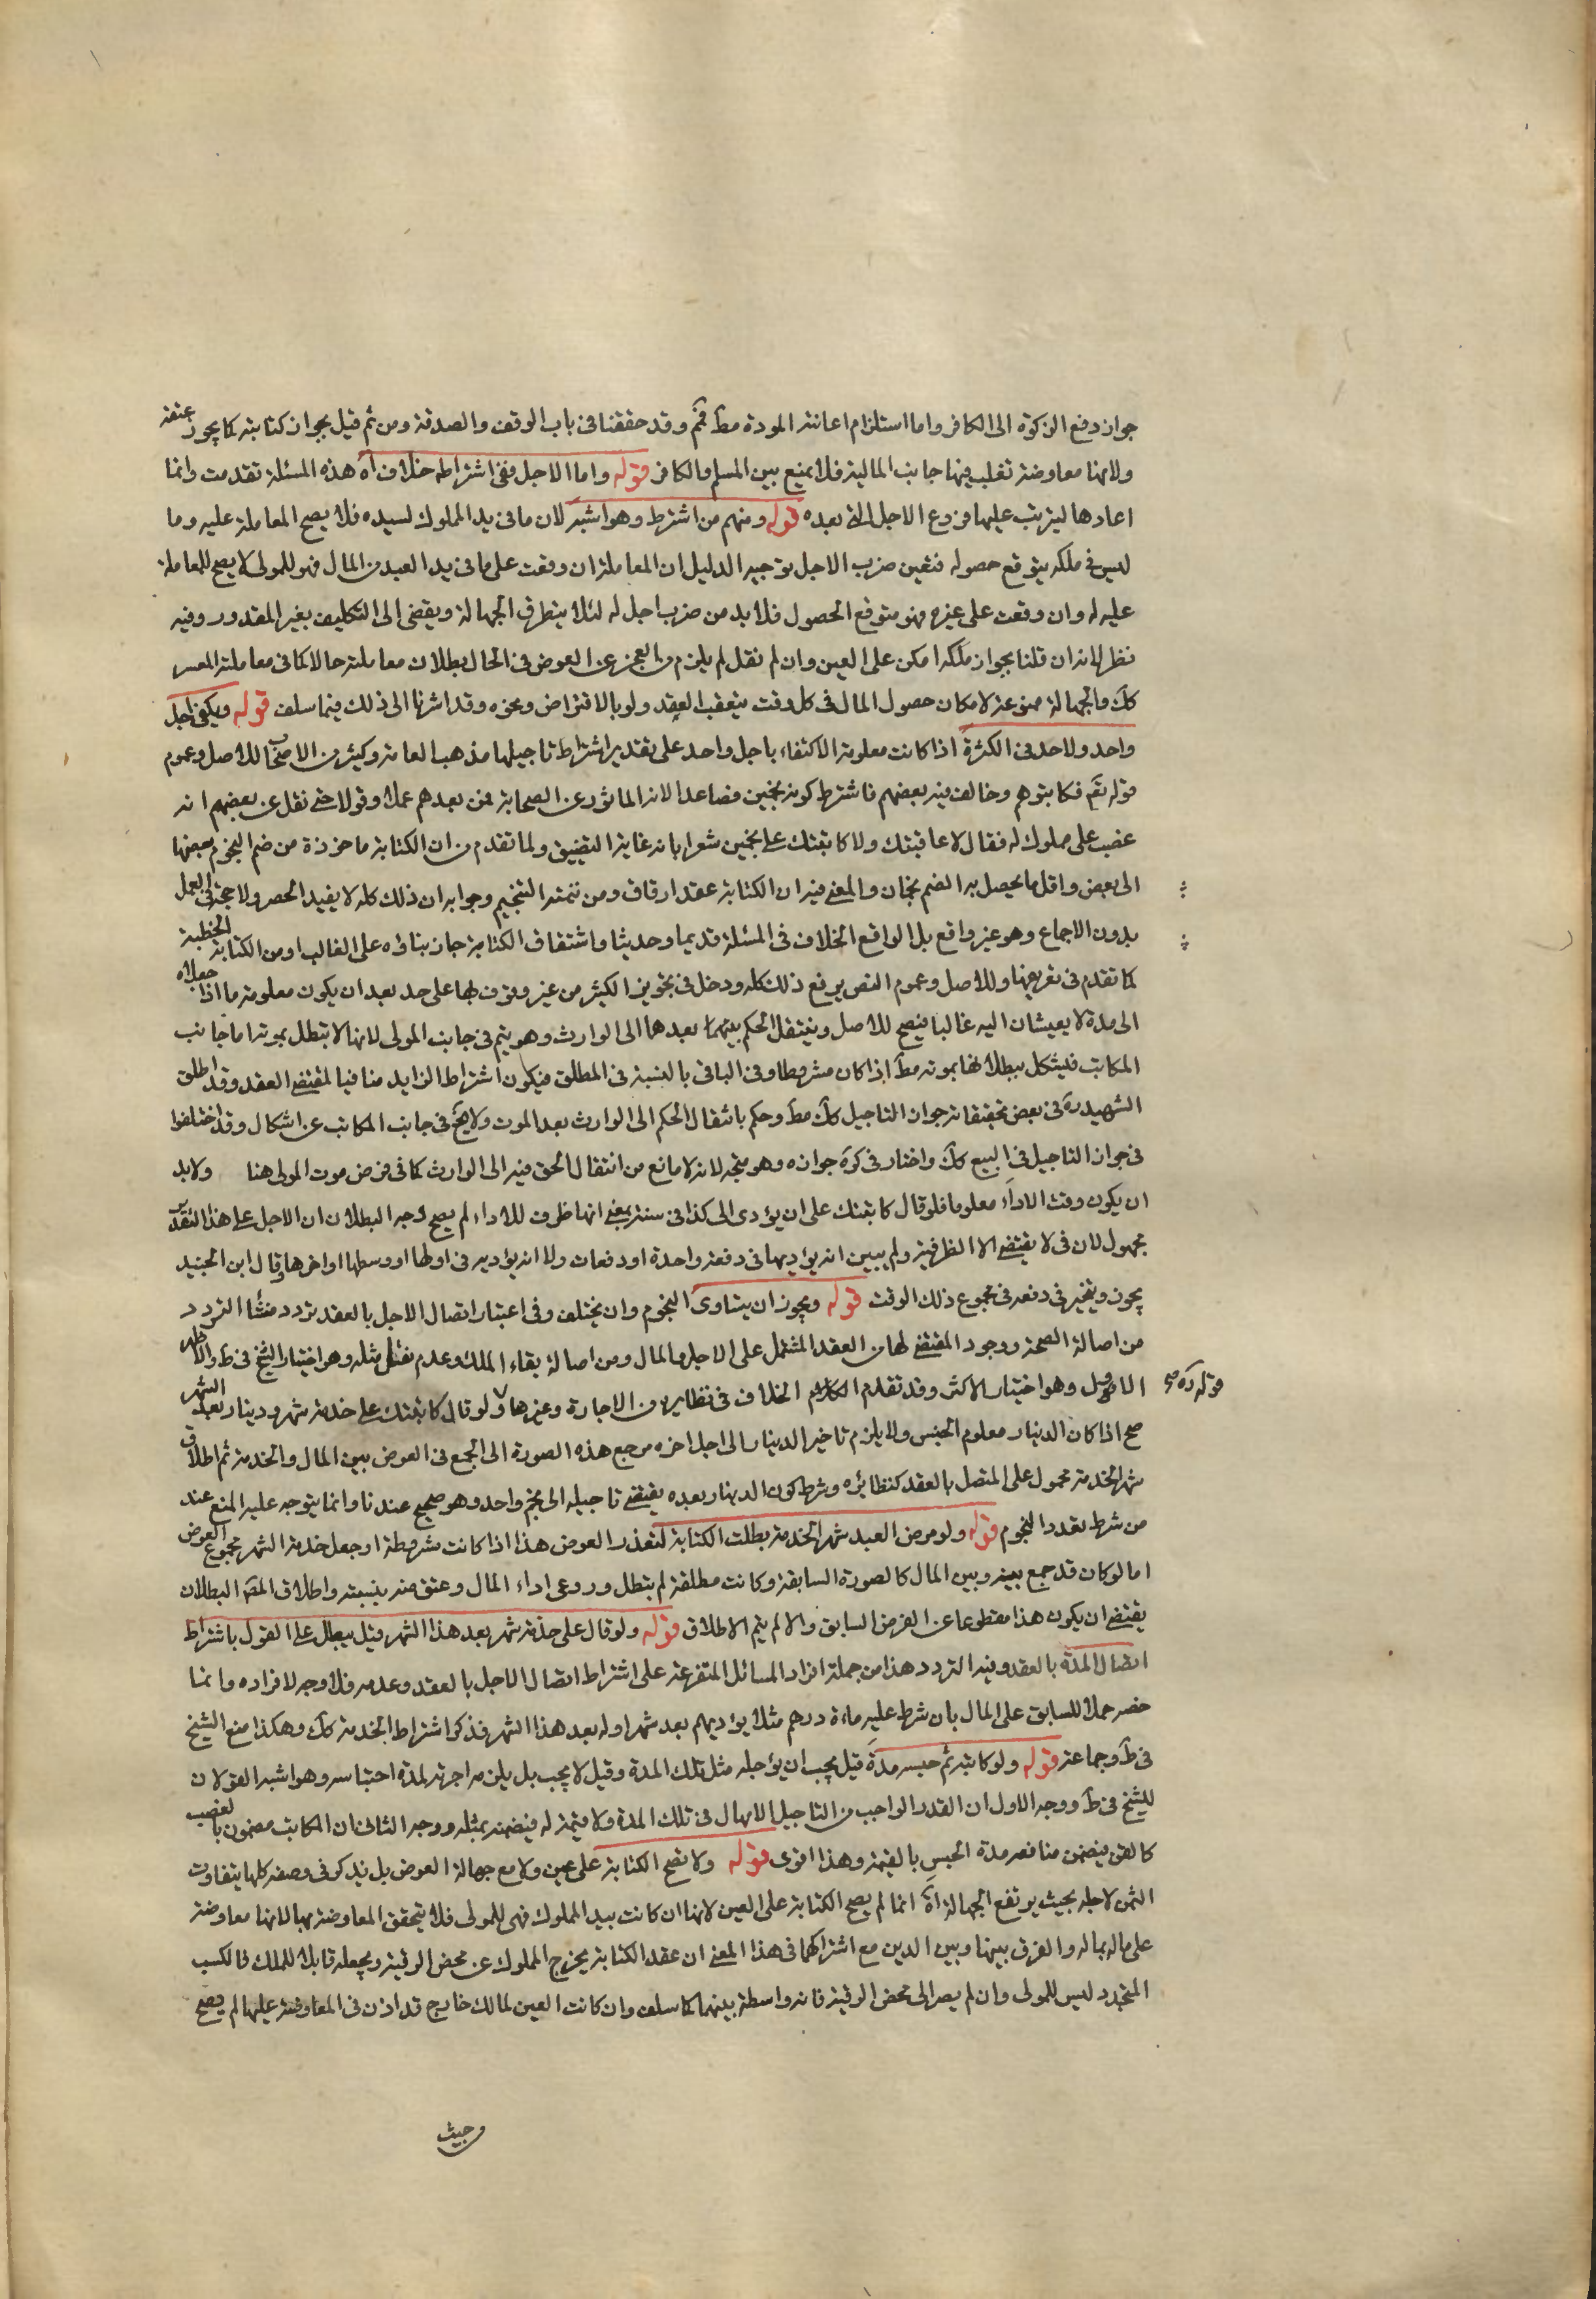 جواز دفع الزكوة الى الكافر واما استلزام اعانته المودة مط فثم وقد حققنا فى باب الوقف والصدقة ومن ثم قيل بجواز كتابته كما يجوز عتقه
ولانها معاوضة تغلب فيها جانب المالية فلا يمنع بين المسلم والكافر قوله واما الاجل ففى اشتراطه خلاف اه هذه المسئلة تقدمت وانما
اعادها ليترتب عليها فروع الاجل التى بعده قوله ومنهم من اشترط وهو اشبه لان ما فى يد المملوك لسيده فلا يصح المعاملة عليه وما
ليس فى ملكه يتوقع حصوله فتعين ضرب الاجل توجيه الدليل ان المعاملة ان وقعت على ما فى يد العبد من المال فهو للمولى لا يصح للمعاملة
عليه له وان وقعت على غيره فهو متوقع الحصول فلا بد من ضرب اجل له لئلا يتطرق الجهالة ويفضى الى التكليف بغير المقدور وفيه
نظر لانه ان قلنا بجواز ملكه امكن على العين وان لم نقل لم يلزم من العجز عن العوض فى الحال بطلان معاملته حالا كما فى معاملة المعسر
كك والجهالة ممنوعة لامكان حصول المال فى كل وقت يتعقب العقد ولو بالاقتراض ونحوه وقد اشرنا الى ذلك فيما سلف قوله ويكفى اجل
واحد ولا حد فى الكثرة اذا كانت معلومة الاكتفاء باجل واحد على تقدير اشتراط تاجيلها مذهب العامة وكثير من الاصحاب للاصل وعموم
قوله تقم فكاتبوهم وخالف فيه بعضهم فاشترط كونه نجمين فصاعدا لانه الماثور عن الصحابة فمن بعدهم عملا وقولا حتى نقل عن بعضهم انه
غضب على مملوك له فقال لاعاقبنك ولا كاتبتك على نجمين شعرا بانه غاية التضييق ولما تقدم من ان الكتابة ماخوذة من ضم النجوم بعضها
الى بعض واقل ما يحصل به الضم نجمان والمعنى فيه ان الكتابة عقد ارفاق ومن تتمته التنجيم وجوابه ان ذلك كله لا يفيد الحصر ولا حجة فى العمل
بدون الاجماع وهو غير واقع بل الواقع الخلاف فى المسئلة قديما وحديثا واشتقاق الكتابة جاز بناؤه على الغالب او من الكتابة الخطية
كما تقدم فى تعريفها وللاصل وعموم النص يرفع ذلك كله ودخل فى تجويز الكثير من غير وقوف لها على حد بعد ان يكون معلومة ما اذا جعلاه
الى مدة لا يعيشان اليه غالبا فيصح للاصل وينتقل الحكم بينهما بعدهما الى الوارث وهو يتم فى جانب المولى لانها لا بتطل بموته اما جانب
المكاتب فيشكل ببطلانها بموته مط اذا كان مشروطا وفى الباقى بالنسبة فى المطلق فيكون اشتراط الزايد منافيا لمقتضى العقد وقد اطلق
الشهيد ره فى بعض تحقيقاته جواز التاجيل كك مط وحكم بانتقال الحكم الى الوارث بعد الموت ولا يخ فى جانب المكاتب عن اشكال وقد اختلفوا
فى جواز التاجيل فى البيع كك واختار فى كره جوازه وهو متجه لانه لا مانع من انتقال الحق فيه الى الوارث كما فى فرض موت المولى هنا ولا بد
ان يكون وقت الاداء معلوما فلو قال كاتبتك على ان يؤدى الى كذا فى سنة بمعنى انها ظرف للاداء لم يصح وجه البطلان ان الاجل على هذا التقدير
مجهول لان فى لا يقتضى الا الظرفية ولم يبين انه يؤديها فى دفعة واحدة او دفعات ولا انه يؤديه فى اولها او وسطها او اخرها وقال ابن الجنيد
يجوز ويتخير فى دفعه فى مجموع ذلك الوقت قوله ويجوز ان يتساوى النجوم وان يختلف وفى اعتبار اتصال الاجل بالعقد تردد منشا التردد
من اصالة الصحة ووجود المقتضى لها من العقد المشتمل على الاجل والمال ومن اصالة بقاء الملك وعدم نقل مثله وهو اختيار الشيخ فى ط والاظهر
الاول وهو اختيار الاكثر وقد تقدم الكلام الخلاف فى نظايره من الاجارة وغيرها ولو قال كاتبتك على خدمة شهر ودينار بعد الشهر
صح اذا كان الدينار معلوم الجنس ولا يلزم تاخير الدينار الى اجل اخره مرجع هذه الصورة الى الجمع فى العوض بين المال والخدمة ثم اطلاق
شهر الخدمة محمول على المتصل بالعقد كنظائره وشرط كون الدينار بعده يقتضى تاجيله الى نجم واحد وهو صحيح عندنا وانما يتوجه عليه المنع عند
من شرط تعدد النجوم قوله ولو مرض العبد شهر الخدمة بطلت الكتابة لتعذر العوض هذا اذا كانت مشروطة او جعل خدمة الشهر مجموع العوض
اما لو كان قد جمع بينه وبين المال كالصورة السابقة وكانت مطلقة لم بتطل وروعى اداء المال وعتق منه بنسبته واطلاق المصر البطلان
يقتضى ان يكون هذا مقطوعا عن الفرض السابق والا لم يتم الاطلاق قوله ولو قال على خدمة شهر بعد هذا الشهر قيل يبطل على القول باشتراط
اتصال المدة بالعقد وفيه التردد هذا من جملة افراد المسائل المتفرعة على اشتراط اتصال الاجل بالعقد وعدمه فلا وجه لافراده وانما
خصه حملا للسابق على المال بان شرط عليه مائة درهم مثلا يؤديهم بعد شهر اوله بعد هذا الشهر فذكر اشتراط الخدمة كك وهكذا صنع الشيخ
فى ط وجماعة قوله ولو كاتبه ثم حبسه مدة قيل يجب ان يؤجله مثل تلك المدة وقيل لا يجب بل يلزمه اجرته لمدة احتباسه وهو اشبه القولان
للشيخ فى ط ووجه الاول ان القدر الواجب من التاجيل الامهال فى تلك المدة ولا قيمة له فيضمنه بمثله ووجه الثانى ان المكاتب مضمون بالغصب
كالقن فيضمن منافعه مدة الحبس بالقيمة وهذا اقوى قوله ولا تصح الكتابة على عين ولا مع جهالة العوض بل يذكر فى وصفه كلما يتفاوت
الثمن لاجله بحيث يرتفع الجهالة اه انما لم يصح الكتابة على العين لانها ان كانت بيد المملوك فهى للمولى فلا يتحقق المعاوضة بها لانها معاوضة
على ماله بماله والفرق بينها وبين الدين مع اشتراكهما فى هذا المعنى ان عقد الكتابة يخرج المملوك عن محض الرقية ويجعله قابلا للملك فالكسب
المتجدد ليس للمولى وان لم يصر الى محض الرقية فانه واسطة بينهما كما سلف وان كانت العين لمالك خارج قد اذن فى المعاوضة عليها لم يصح
وحيث